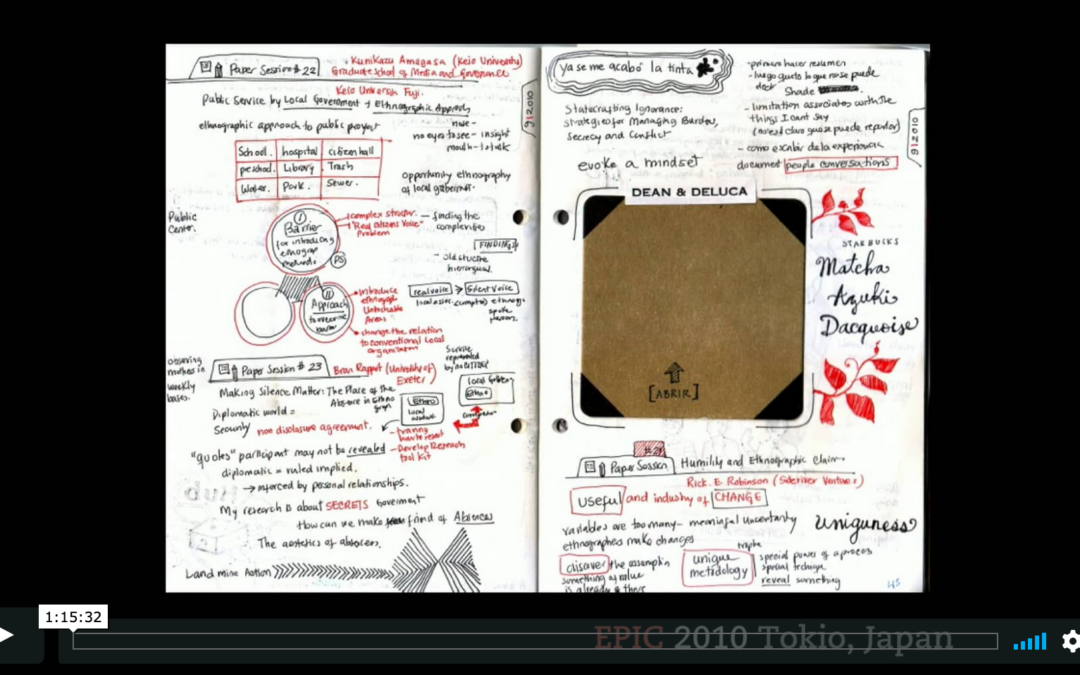 Paper Session # 22
Kumikazu Amagasa (Keio University)
Graduate School of Media and Governance
Keio University Fuji.
Public Service by Local Government + Ethnographic Approach
ethnographic approach to public project
nose -
no eyes to see - insight
mouth - to talk
School. hospital citizen hall
preschool. Library Trash
Water. Park. Sewer.
opportunity ethnography
of local goberment.
Public
Center.
I
Barrier
for introducing
ethnograph
methods
PS
complex structur.
"Real citizens Voice"
Problem
finding the
complexities
FINDING
- old structure
hierarqual
II
Approach
barrier
introduce
Untouchable
Areas
change the relation
to conventional Local
organization
real voice → Silent Voice
observing
mothers in
weekly
bases.
Paper Session # 23
Brian Rappert (University of
Exeter)
Making Silence Matter: The Place of the
Absence in Ethno
graph
Diplomatic world =
Security non disclosure agreement.
Ethno
Local
Local Gobern
Ethno
- training
- Develop Research
tool kit
"quotes" participant may not be revealed
diplomatic = ruled implied.
→ inforced by personal relationships.
My research is about SECRETS Goverment
How can we make friend of Absences
The aestetics of absences.
Land mine Action
9|2010
ya se me acabó la tinta
- primero hacer resumen
- luego gusto lo que no se puede
decir
Shade
- limitation associates with the
things I cant say
- como escribir de la experiencia
document people conversations
Statecrafting Ignorance:
strategies for Managing Burden,
Secrecy and Conflict
evoke a mindset
9|2010
DEAN & DELUCA
[ABRIR]
STARBUCKS
Matcha
Azuki
Dacquoise
Paper Session
Humility and Ethnographic Claim
Rick. E. Robinson (Sideriver Ventures)
Useful and industry of CHANGE
variables are too many - meaningful uncertainty
ethnographers make changes
Uniguness
disover the assumption
something of value
is already there
unique
metodology
special power of a process
special technique
reveal something
45
1:15:32
EPIC 2010 Tokio, Japan